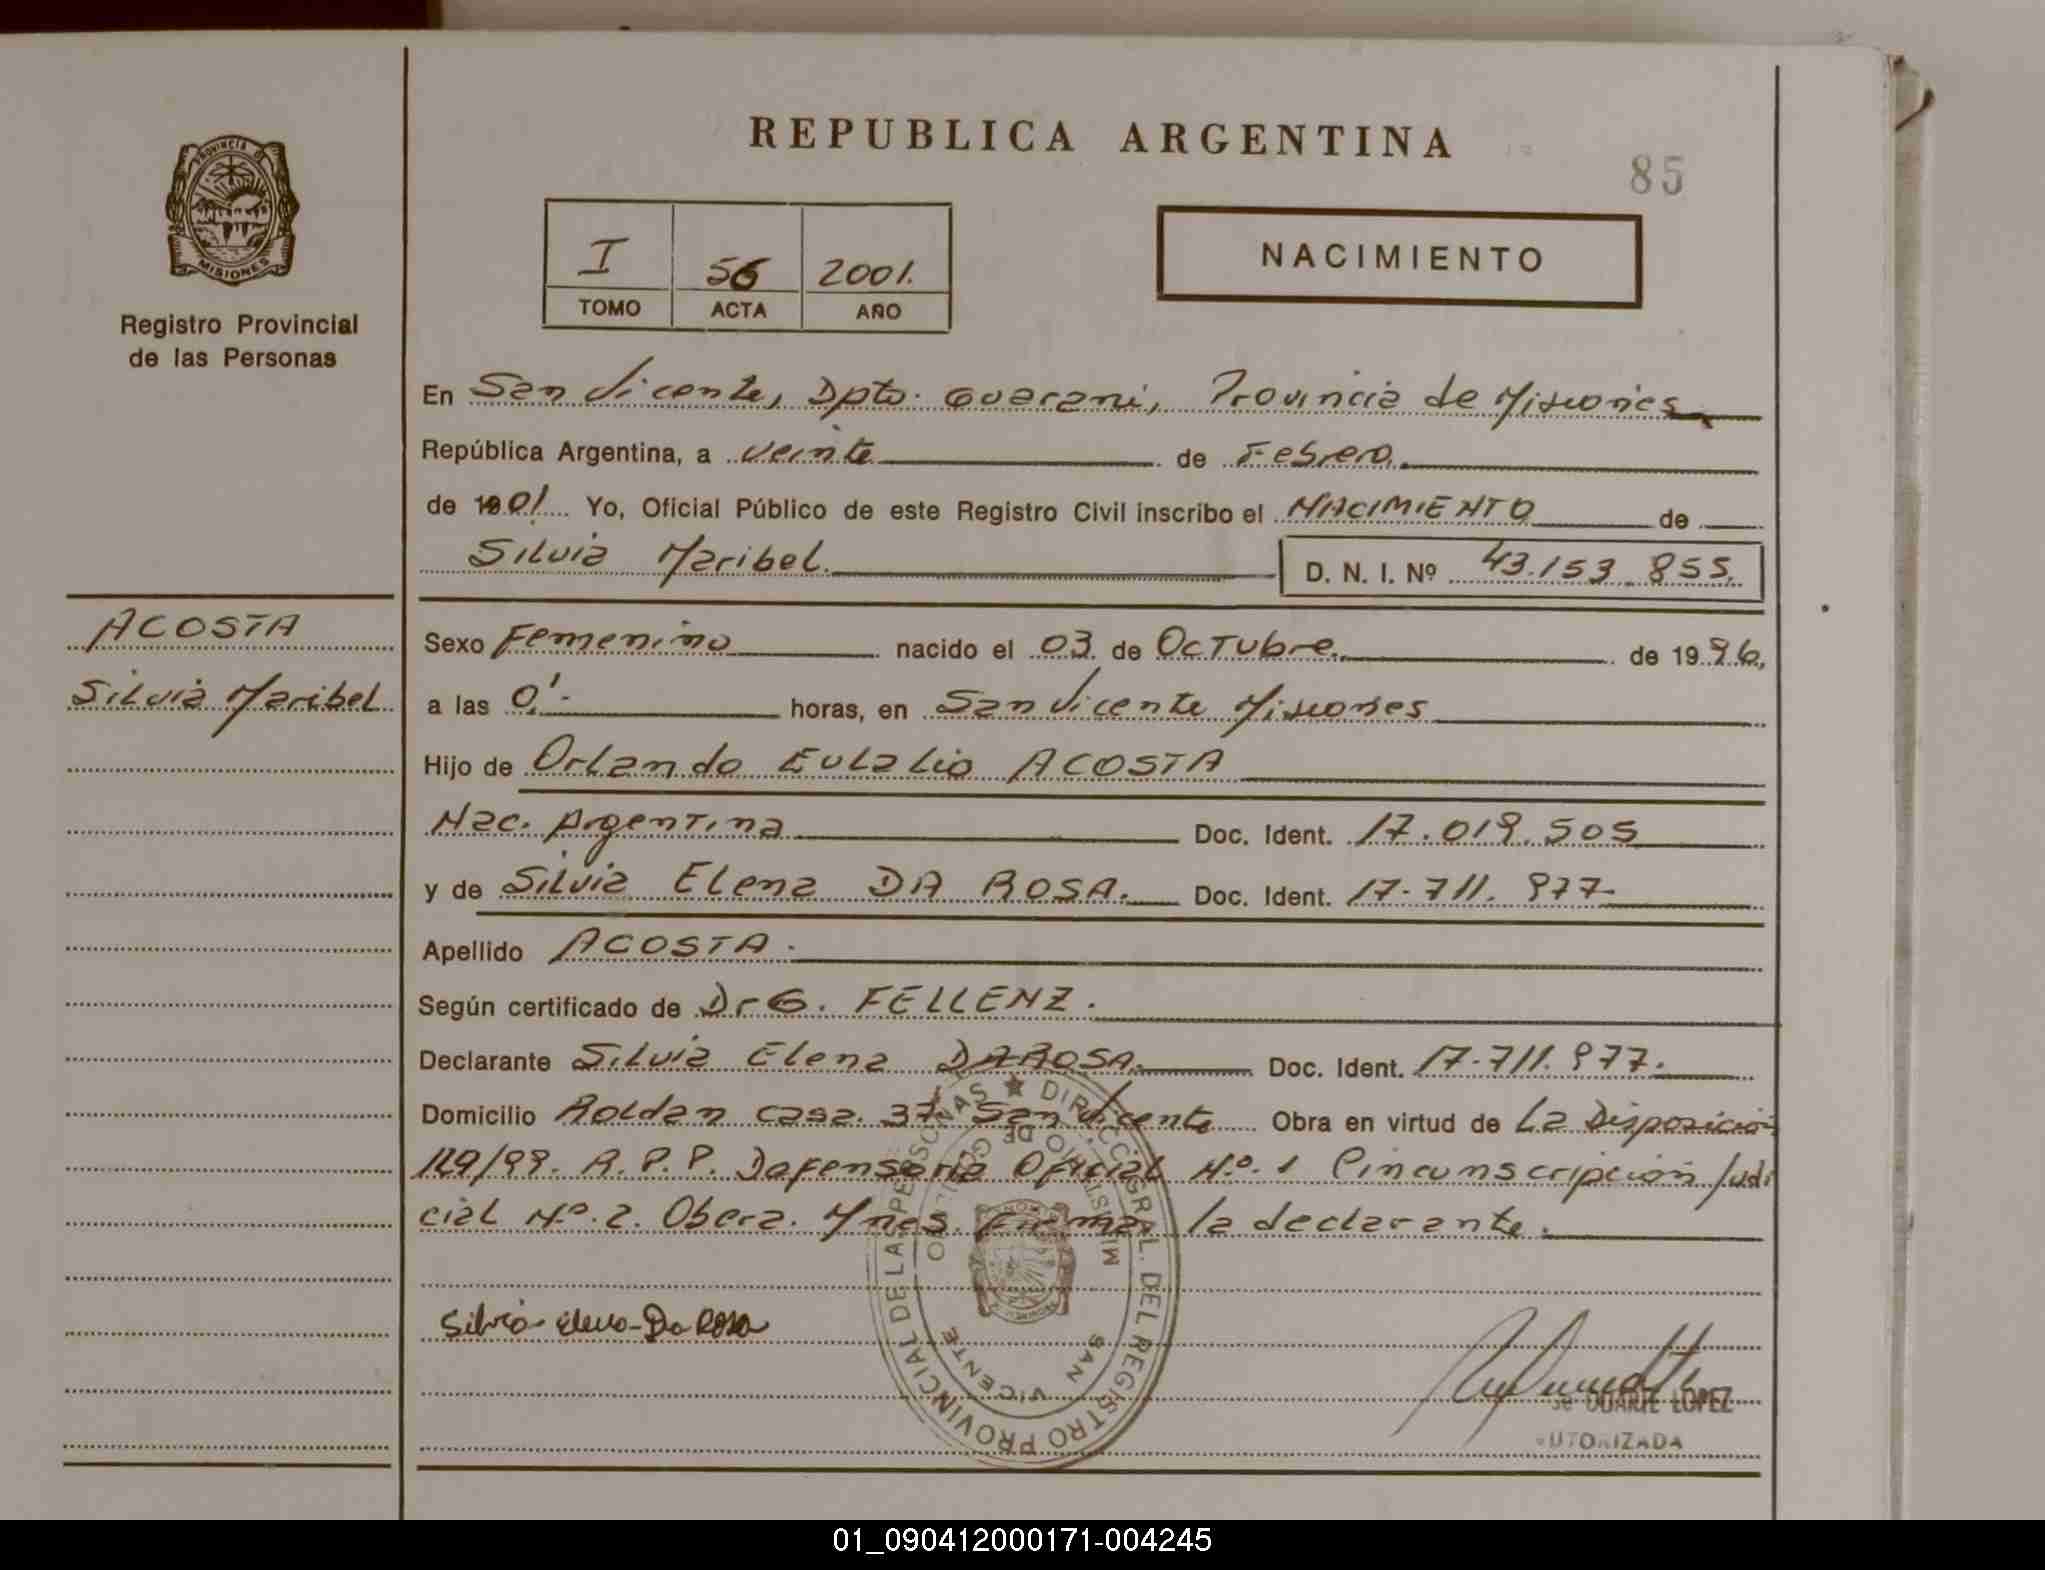 REPUBLICA ARGENTINA
85
PROVINCIA D
MISIONES
Registro Provincial
de las Personas
I 56 2001.
TOMO ACTA AÑO
NACIMIENTO
En San Vicente, Dpto. Guarani, Provincia de Misiones
República Argentina, a veinte de Febrero.
de 1901 Yo, Oficial Público de este Registro Civil inscribo el NACIMIENTO de
Silvia Maribel. D. N. I. Nº 43.153.855.
ACOSTA
Silvia Maribel
Sexo Femenino nacido el 03 de Octubre. de 1996,
a las 0'.- horas, en San Vicente Misiones
Hijo de Orlando Eulalio ACOSTA
Nac. Argentina Doc. Ident. 17.019.505
y de Silvia Elena DA ROSA. Doc. Ident. 17.711.977-
Apellido ACOSTA.
Según certificado de Dr G. FELLENZ.
Declarante Silvia Elena DA ROSA. Doc. Ident. 17.711.977.
Domicilio Roldan casa. 37 San Vicente Obra en virtud de La Disposición
129/99. R.P.P. Defensoria Oficial Nº. 1 Cincunscripción Judi
cial Nº. 2. Obera. Mnes. Firma la declarante.
DIRECC. GRAL. DEL REGISTRO PROVINCIAL DE LAS PERSONAS
MINISTERIO DE GOBIERNO
SAN VICENTE
Silvia Elena Da Rosa
DUARTE LOPEZ
UTORIZADA
01_090412000171-004245